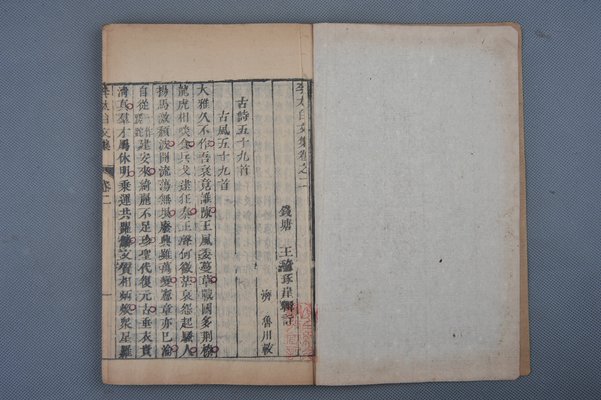 李太白文集卷之二
錢塘 王琦琢崖輯註
濟 魯川較
古詩五十九首
古風五十九首
大雅久不作吾衰竟誰陳王風委蔓草戰國多荆榛
龍虎相啖食兵戈逮狂秦正聲何微茫哀怨起騷人
揚馬激頹波開流蕩無垠廢興雖萬變憲章亦已淪
自從建安來綺麗不足珍聖代復元古垂衣貴
清真羣才屬休明乘運共躍鱗文質相炳煥衆星羅
李太白文集 卷二